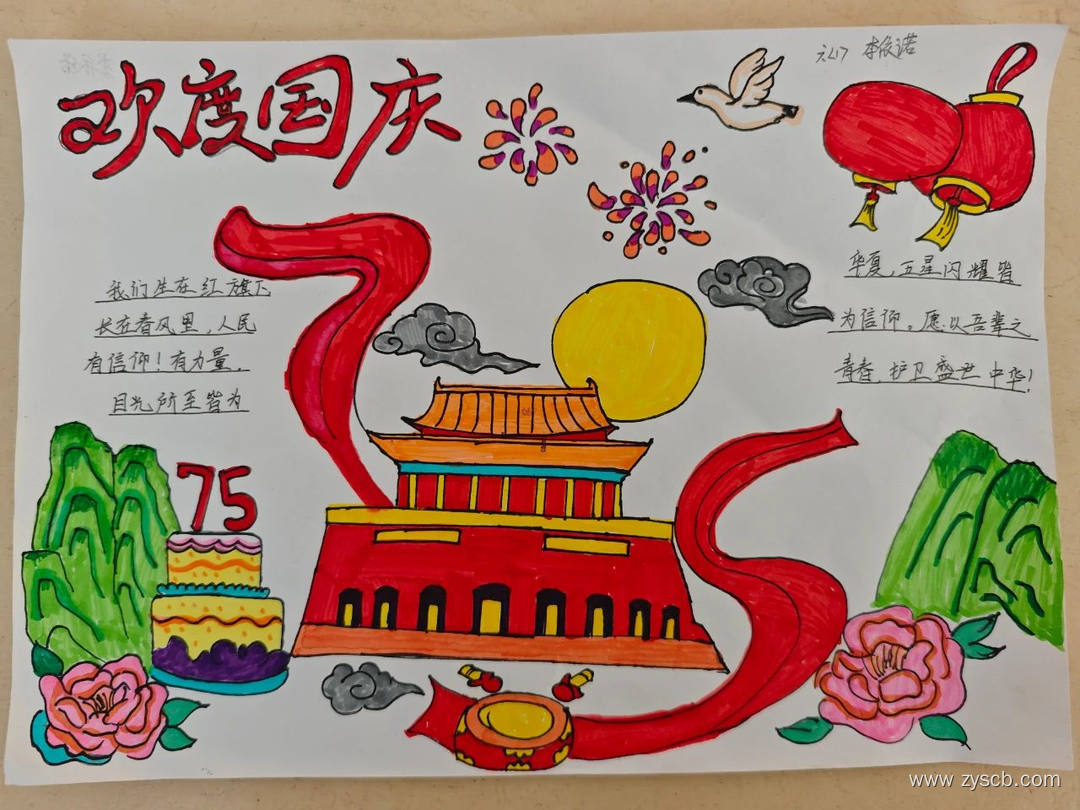 欢度国庆
六(17) 李依诺
我们生在红旗下
长在春风里，人民
有信仰！有力量，
目光所至皆为
华夏，五星闪耀皆
为信仰。愿以吾辈之
青春，护卫盛世中华！
75
www.zyscb.com